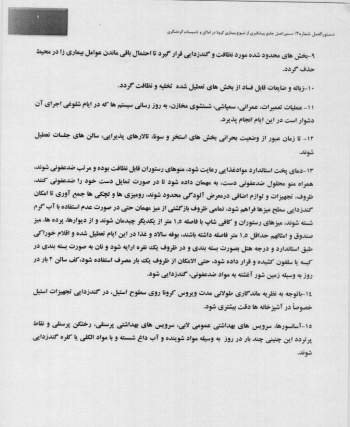 دستورالعمل شماره ۱۲: دستورالعمل جامع پیشگیری از شیوع بیماری کرونا در اماکن و تاسیسات گردشگری
۹-بخش های محدود شده مورد نظافت و گندزدایی قرار گیرد تا احتمال باقی ماندن عوامل بیماری زا در محیط
حذف گردد.
۱۰- زباله و ضایعات قابل فساد از بخش های تعطیل شده تخلیه و نظافت گردد.
۱۱- عملیات تعمیرات، عمرانی، سمپاشی، شستشوی مخازن، به روز رسانی سیستم ها که در ایام شلوغی اجرای آن
دشوار است در این ایام انجام پذیرد.
۱۲- تا زمان عبور از وضعیت بحرانی بخش های استخر و سونا، تالارهای پذیرایی، سالن های جلسات تعطیل
شوند.
۱۳-دمای پخت استاندارد موادغذایی رعایت شود، منوهای رستوران قابل نظافت بوده و مرتب ضدعفونی شوند،
همراه منو محلول ضدعفونی دست، به مهمان داده شود تا در صورت تمایل دست خود را ضدعفونی کنند،
ظروف، تجهیزات و لوازم اضافی درمعرض آلودگی محدود شوند، رومیزی ها و تجکی ها جمع آوری تا امکان
گندزدایی سطح میزها فراهم شود، تمامی ظروف بازگشتی از میز مهمان حتی در صورت عدم استفاده با آب گرم
شسته شوند، میزهای رستوران و کافی شاپ با فاصله ۱.۵ متر از یکدیگر چیدمان شوند و از دیوارها، پرده ها، میز
صندوق و امثالهم حداقل ۱.۵ متر فاصله داشته باشند، بوفه سالاد و غذا در این ایام تعطیل شده و اقلام خوراکی
طبق استاندارد و درجه هتل بصورت بسته بندی و در ظروف یک نفره ارایه شود و نان به صورت بسته بندی در
کیسه یا سلفون کشیده و قرار داده شود، حتی الامکان از ظروف یک بار مصرف استفاده شود، کف سالن ۲ بار در
روز به وسیله زمین شور آغشته به مواد ضدعفونی، گندزدایی شود.
۱۴-باتوجه به نظریه ماندگاری طولانی مدت ویروس کرونا روی سطوح استیل، در گندزدایی تجهیزات استیل
خصوصاً در آشپزخانه ها دقت بیشتری شود.
۱۵-آسانسورها، سرویس های بهداشتی عمومی لابی، سرویس های بهداشتی پرسنلی، رختکن پرسنلی و نقاط
پرتردد این چنینی چند بار در روز به وسیله مواد شوینده و آب داغ شسته و با مواد الکلی یا کلره گندزدایی
شوند.